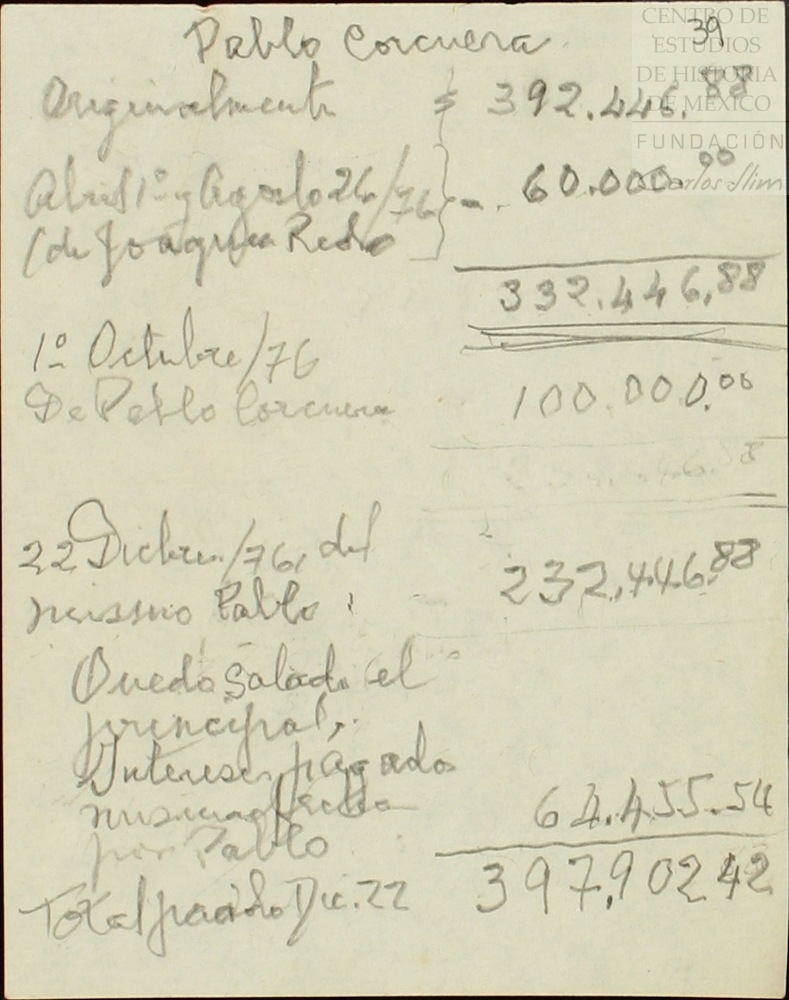 39
Pablo Corcuera
CENTRO DE
ESTUDIOS
DE HISTORIA
DE MÉXICO
FUNDACIÓN
Carlos Slim
Originalmente $ 392.446.88
Abril 1º y Agosto 26/76 - 60.000.00
(de Joaquin Redo
332.446,88
1º Octubre/76
De Pablo Corcuera 100.000.00
22 Dicbre./76, del
mismo Pablo: 232.446.88
Quedó saldado el
principal,
Intereses pagados
misma fecha
por Pablo 64.455.54
Total Dic. 22 397,902 42